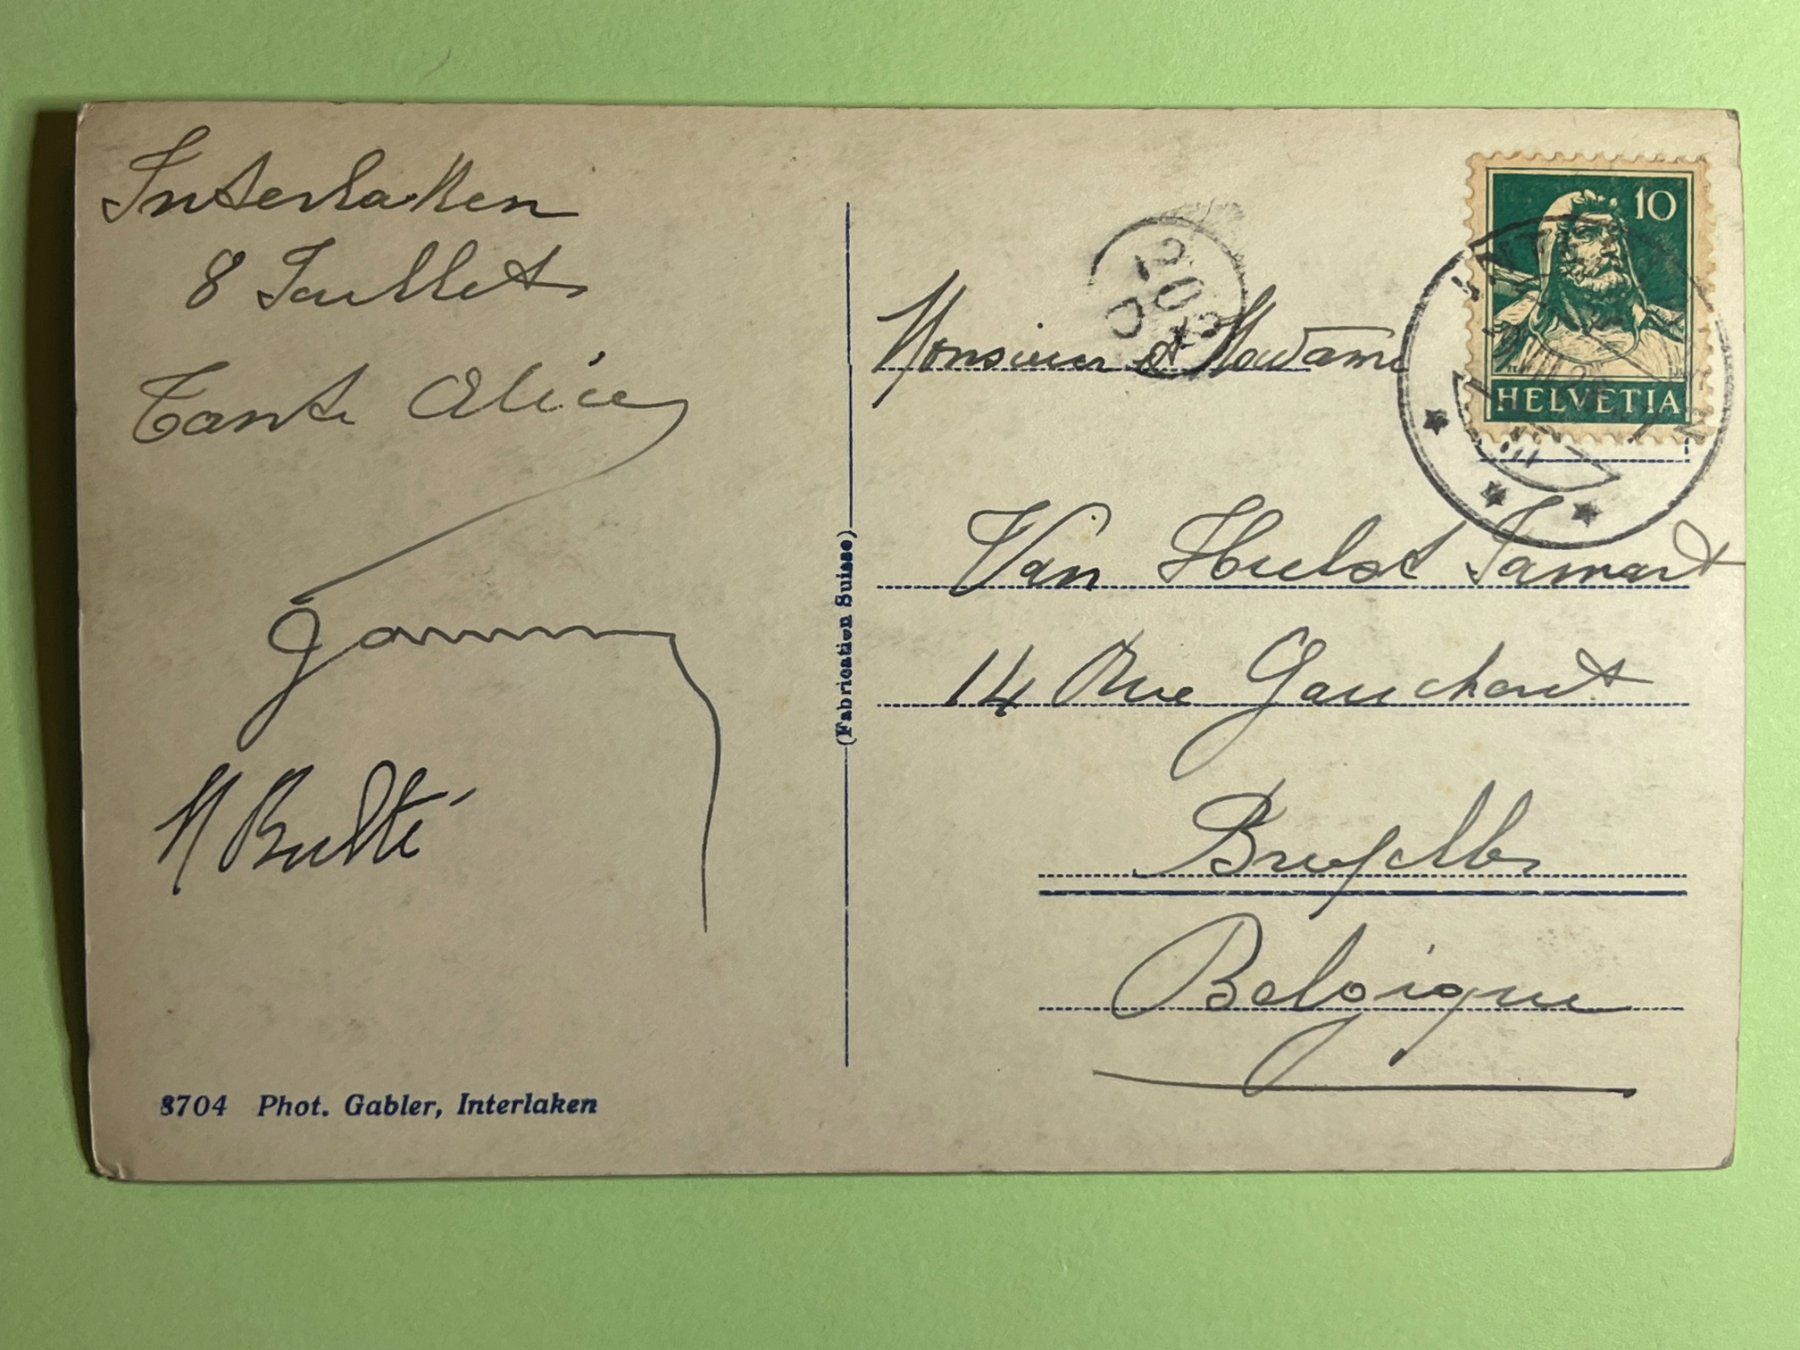 Interlaken
8 Juillet
Tante Alice
M Bulté
8704 Phot. Gabler, Interlaken
(Fabrication Suisse)
10
HELVETIA
203
C
Monsieur et Madame
Van Hulst Samart
14 Rue Gauchart
Bruxelles
Belgique